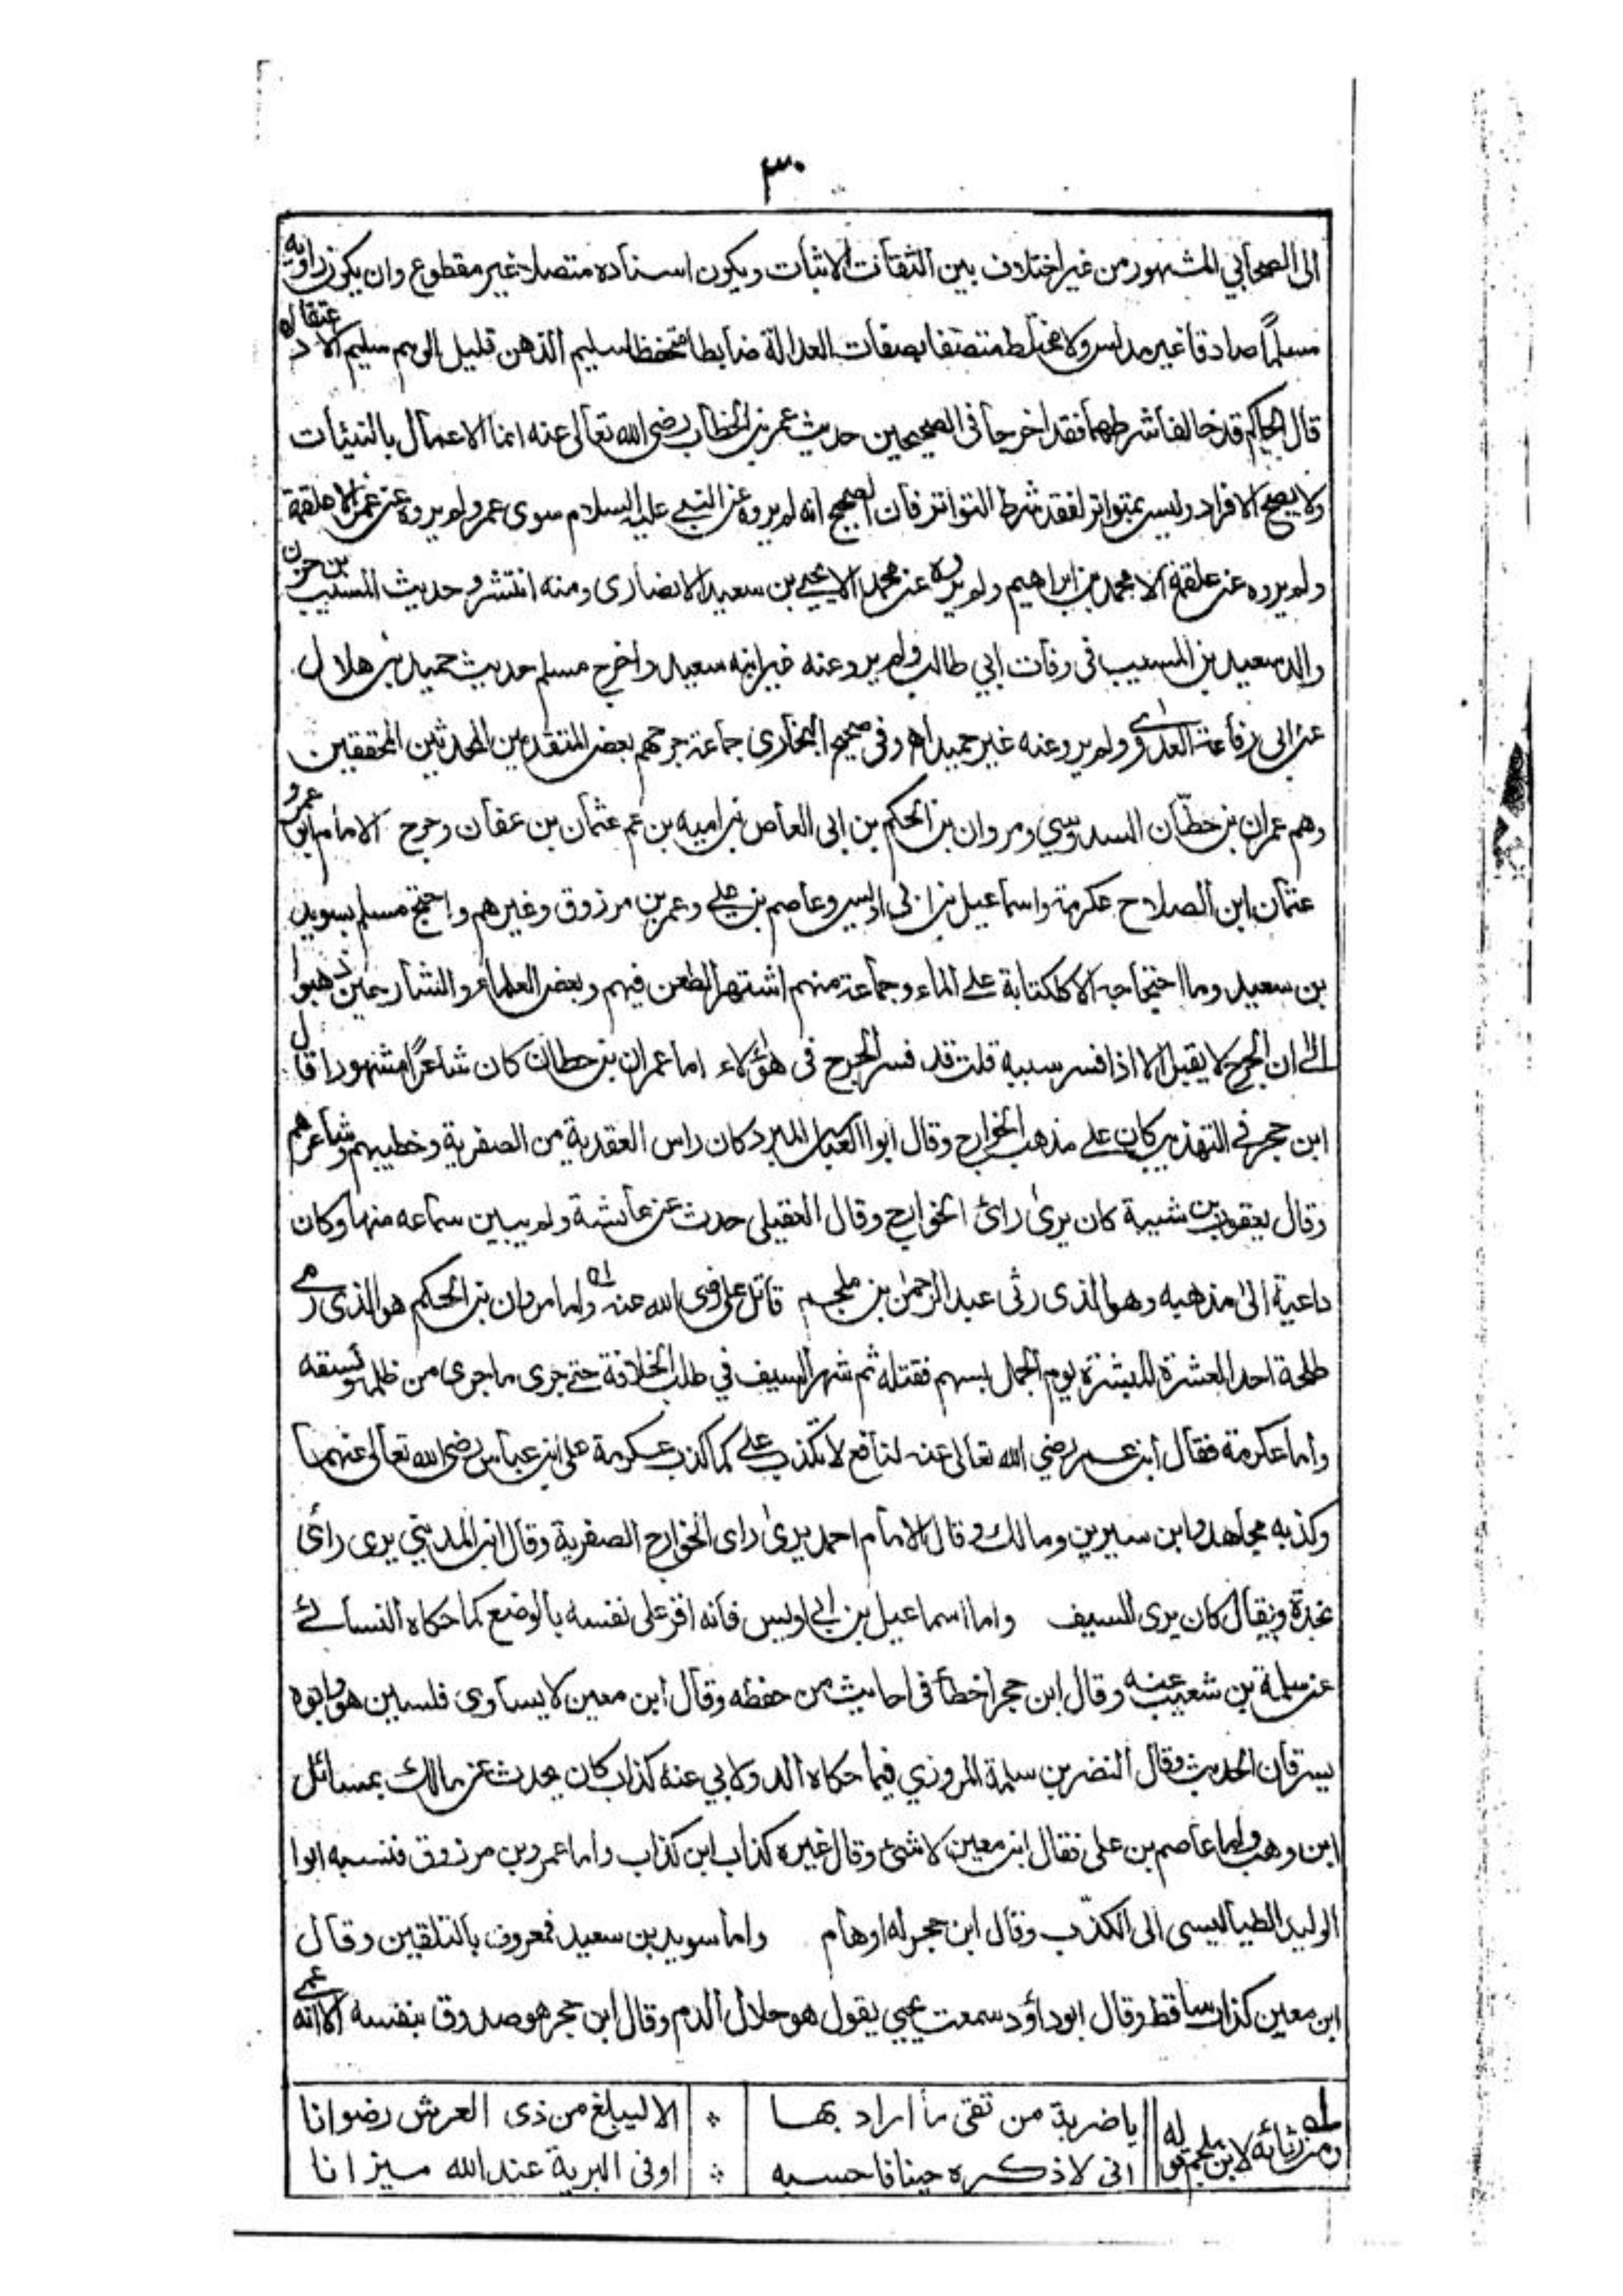 ٣٠
الى الصحابي المشهور من غير اختلاف بين الثقات الاثبات ويكون اسناده متصلا غير مقطوع وان يكون راويه
مسلماً صادقا غير مدلس ولا مختلط متصفا بصفات العدالة ضابطا متحفظا سليم الذهن قليل الوهم سليم الاعتقاد
قال الحاكم قد خالفا شرطهما فقد اخرجا في الصحيحين حديث عمر بن الخطاب رضي الله تعالى عنه انما الاعمال بالنيات
ولا يصح الا فراد وليس بمتواتر لفقد شرط التواتر فان الصحيح انه لم يروه عن النبي عليه السلام سوى عمر ولم يروه عن عمر الا علقمة
ولم يروه عن علقمة الا محمد بن ابراهيم ولم يروه عن محمد الا يحيى بن سعيد الانصارى ومنه انتشر وحديث المسيب بن حزن
والد سعيد بن المسيب في وفات ابي طالب ولم يرو عنه غير ابنه سعيد واخرج مسلم حديث حميد بن هلال
عن ابى رفاعة العدوى ولم يرو عنه غير حميد اه وفى صحيح البخارى جماعة جرحهم بعض المتقدمين المحدثين المحققين
وهم عمران بن حطّان السدوسي ومروان بن الحكم بن ابى العاص بن اميه بن عم عثمان بن عفان وجرح الامام ابو عمرو
عثمان ابن الصلاح عكرمة واسماعيل بن ابى اويس وعاصم بن على وعمر بن مرزوق وغيرهم واحتج مسلم بسويد
بن سعيد وما احتجاجه الا كالكتابة على الماء وجماعة منهم اشتهر الطعن فيهم وبعض العلماء والشارحين ذهبوا
الى ان الجرح لا يقبل الا اذا فسر سببه قلت قد فسر الجرح فى هؤلاء اما عمران بن حطان كان شاعرًا مشهورا قال
ابن حجر في التهذيب كان على مذهب الخوارج وقال ابوا العباس المبرد كان راس العقدية من الصفرية وخطيبهم وشاعرهم
وقال يعقوب بن شيبة كان يرىٰ رائ الخوارج وقال العقيلى حدث عن عايشة ولم يبين سماعه منها وكان
داعية الىٰ مذهبه وهو الذى رثى عبد الرحمٰن بن ملجم قاتل على رضى الله عنه اه واما مروان بن الحكم هو الذى رمى
طلحة احد العشرة المبشرة يوم الجمل بسهم فقتله ثم شهر السيف في طلب الخلافة حتى جرى ما جرى من ظلمه وفسقه
واما عكرمة فقال ابن عمر رضي الله تعالى عنه لنافع لا تكذب على كما كذب عكرمة على ابن عباس رضى الله تعالى عنهما
وكذبه مجاهد وابن سيرين ومالك وقال الامام احمد يرىٰ راى الخوارج الصفرية وقال ابن المديني يرى رائ
نجدة ويقال كان يرى السيف واما اسماعيل بن ابى اويس فانه اقر على نفسه بالوضع كما حكاه النسائى
عن سلمة بن شعيب عنه وقال ابن حجر اخطأ فى احاديث من حفظه وقال ابن معين لا يساوى فلسين هو وابوه
يسرقان الحديث وقال النضر بن سلمة المروزي فيما حكاه الدولابي عنه كذاب كان يحدث عن مالك بمسائل
ابن وهب واما عاصم بن على فقال ابن معين لا شئ وقال غيره كذاب ابن كذاب واما عمرو بن مرزوق فنسبه ابوا
الوليد الطياليسى الى الكذب وقال ابن حجر له اوهام واما سويد بن سعيد فمعروف بالتلقين وقال
ابن معين كذاب ساقط وقال ابو داؤد سمعت يحيى يقول هو حلال الدم وقال ابن حجر هو صدوق بنفسه الا انه عمى
ومن رثائه لابن ملجم قوله
ياضربة من تقى ما اراد بها ۞ الا ليبلغ من ذى العرش رضوانا
انى لاذكره حينا فاحسبه ۞ اوفى البرية عند الله ميزانا